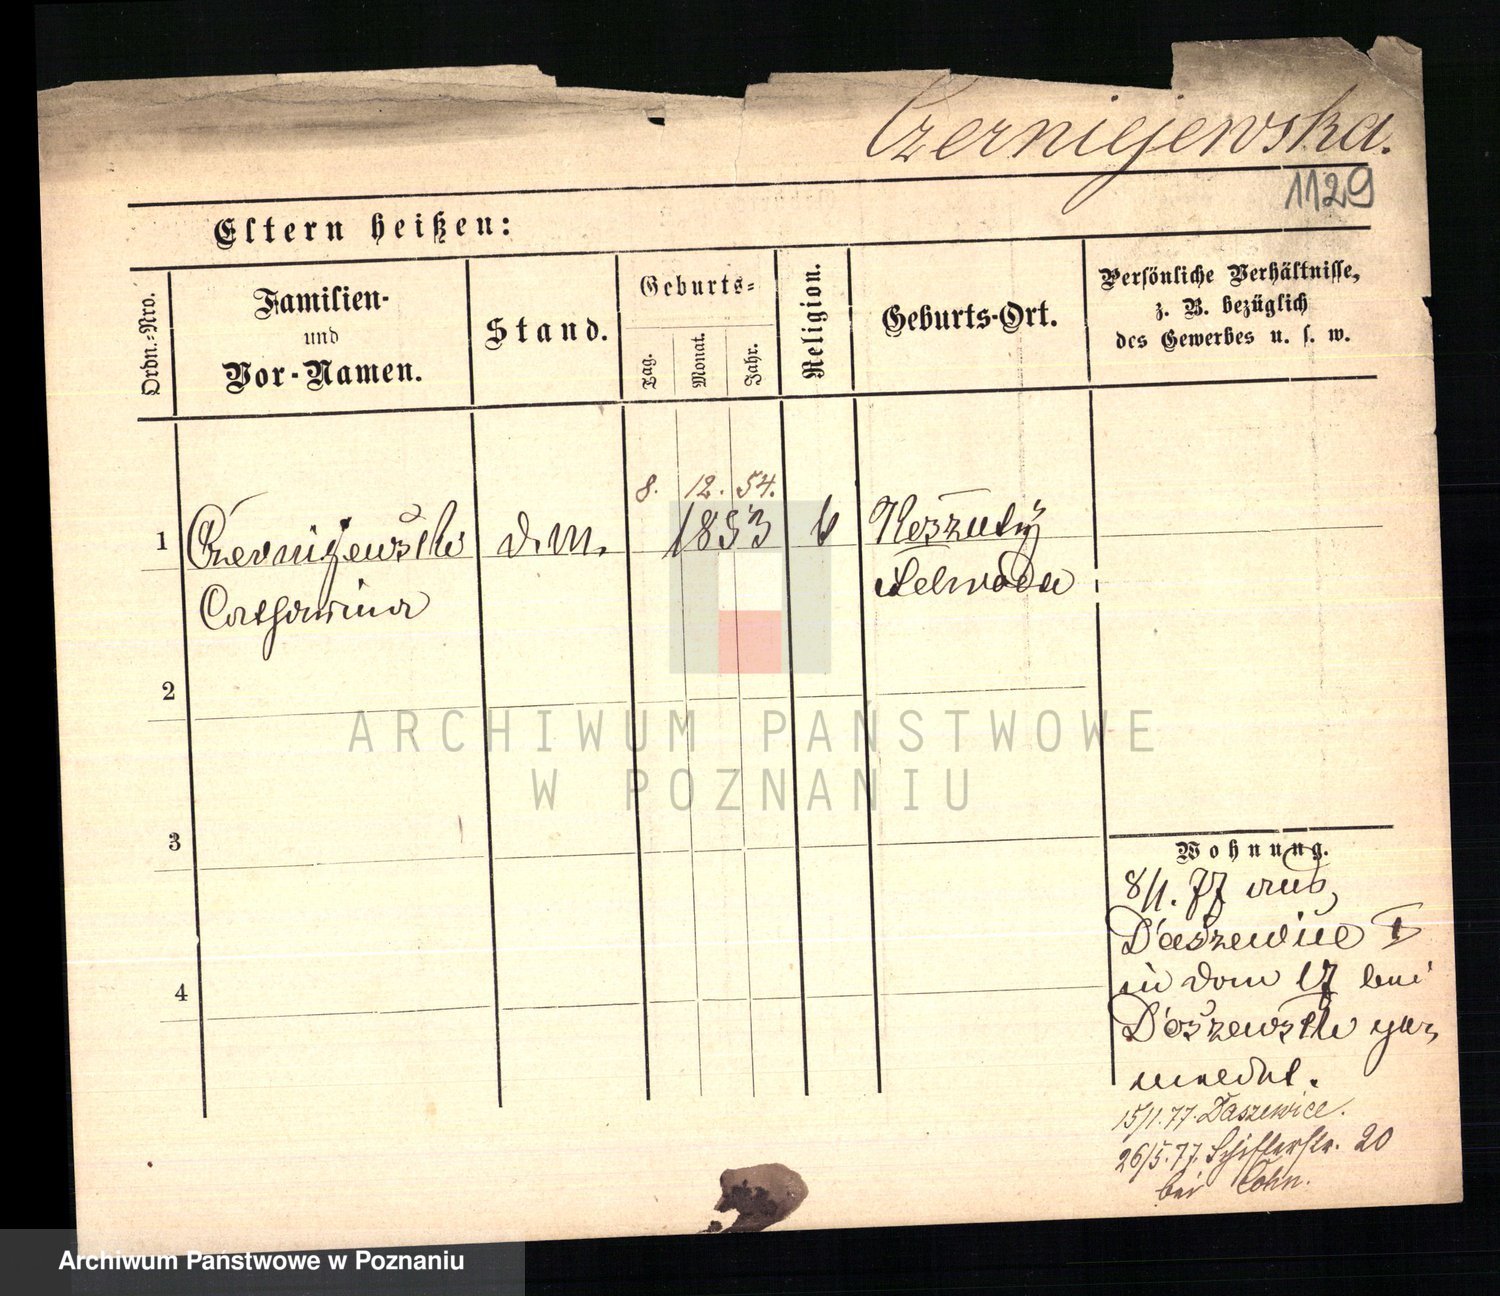 Czerniejewska.
1129
Eltern heißen:
Ordn.-Nro.
Familien-
und
Vor-Namen.
Stand.
Geburts-
Tag.
Monat.
Jahr.
Religion.
Geburts-Ort.
Persönliche Verhältnisse,
z. B. bezüglich
des Gewerbes u. s. w.
8. 12. 54.
1 Czerniejewska d. M. 1853
Catharina
2
3
4
Wohnung.
8/1. 77 aus
Daszewice
in Dom 17 bei
Daszewski ge-
meldet.
15/1. 77. Daszewice.
26/5. 77. Schifferstr. 20
bei Cohn.
ARCHIWUM PAŃSTWOWE
W POZNANIU
Archiwum Państwowe w Poznaniu